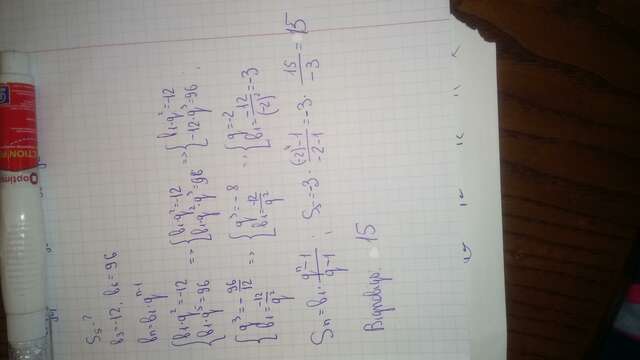 S₅-?
b₃=-12, b₆=96
bₙ=b₁·qⁿ⁻¹
{b₁·q²=-12 {b₁·q⁵=96 => {b₁·q²=-12 {b₁·q²·q³=96 => {b₁·q²=-12 {-12·q³=96
{q³=-96/12 {b₁=-12/q² => {q³=-8 {b₁=-12/q² => {q=-2 {b₁=-12/(-2)²=-3
Sₙ=b₁·(qⁿ-1)/(q-1); S₅=-3·((-2)⁴-1)/(-2-1)=-3·15/-3=15
Відповідь. 15
Optima